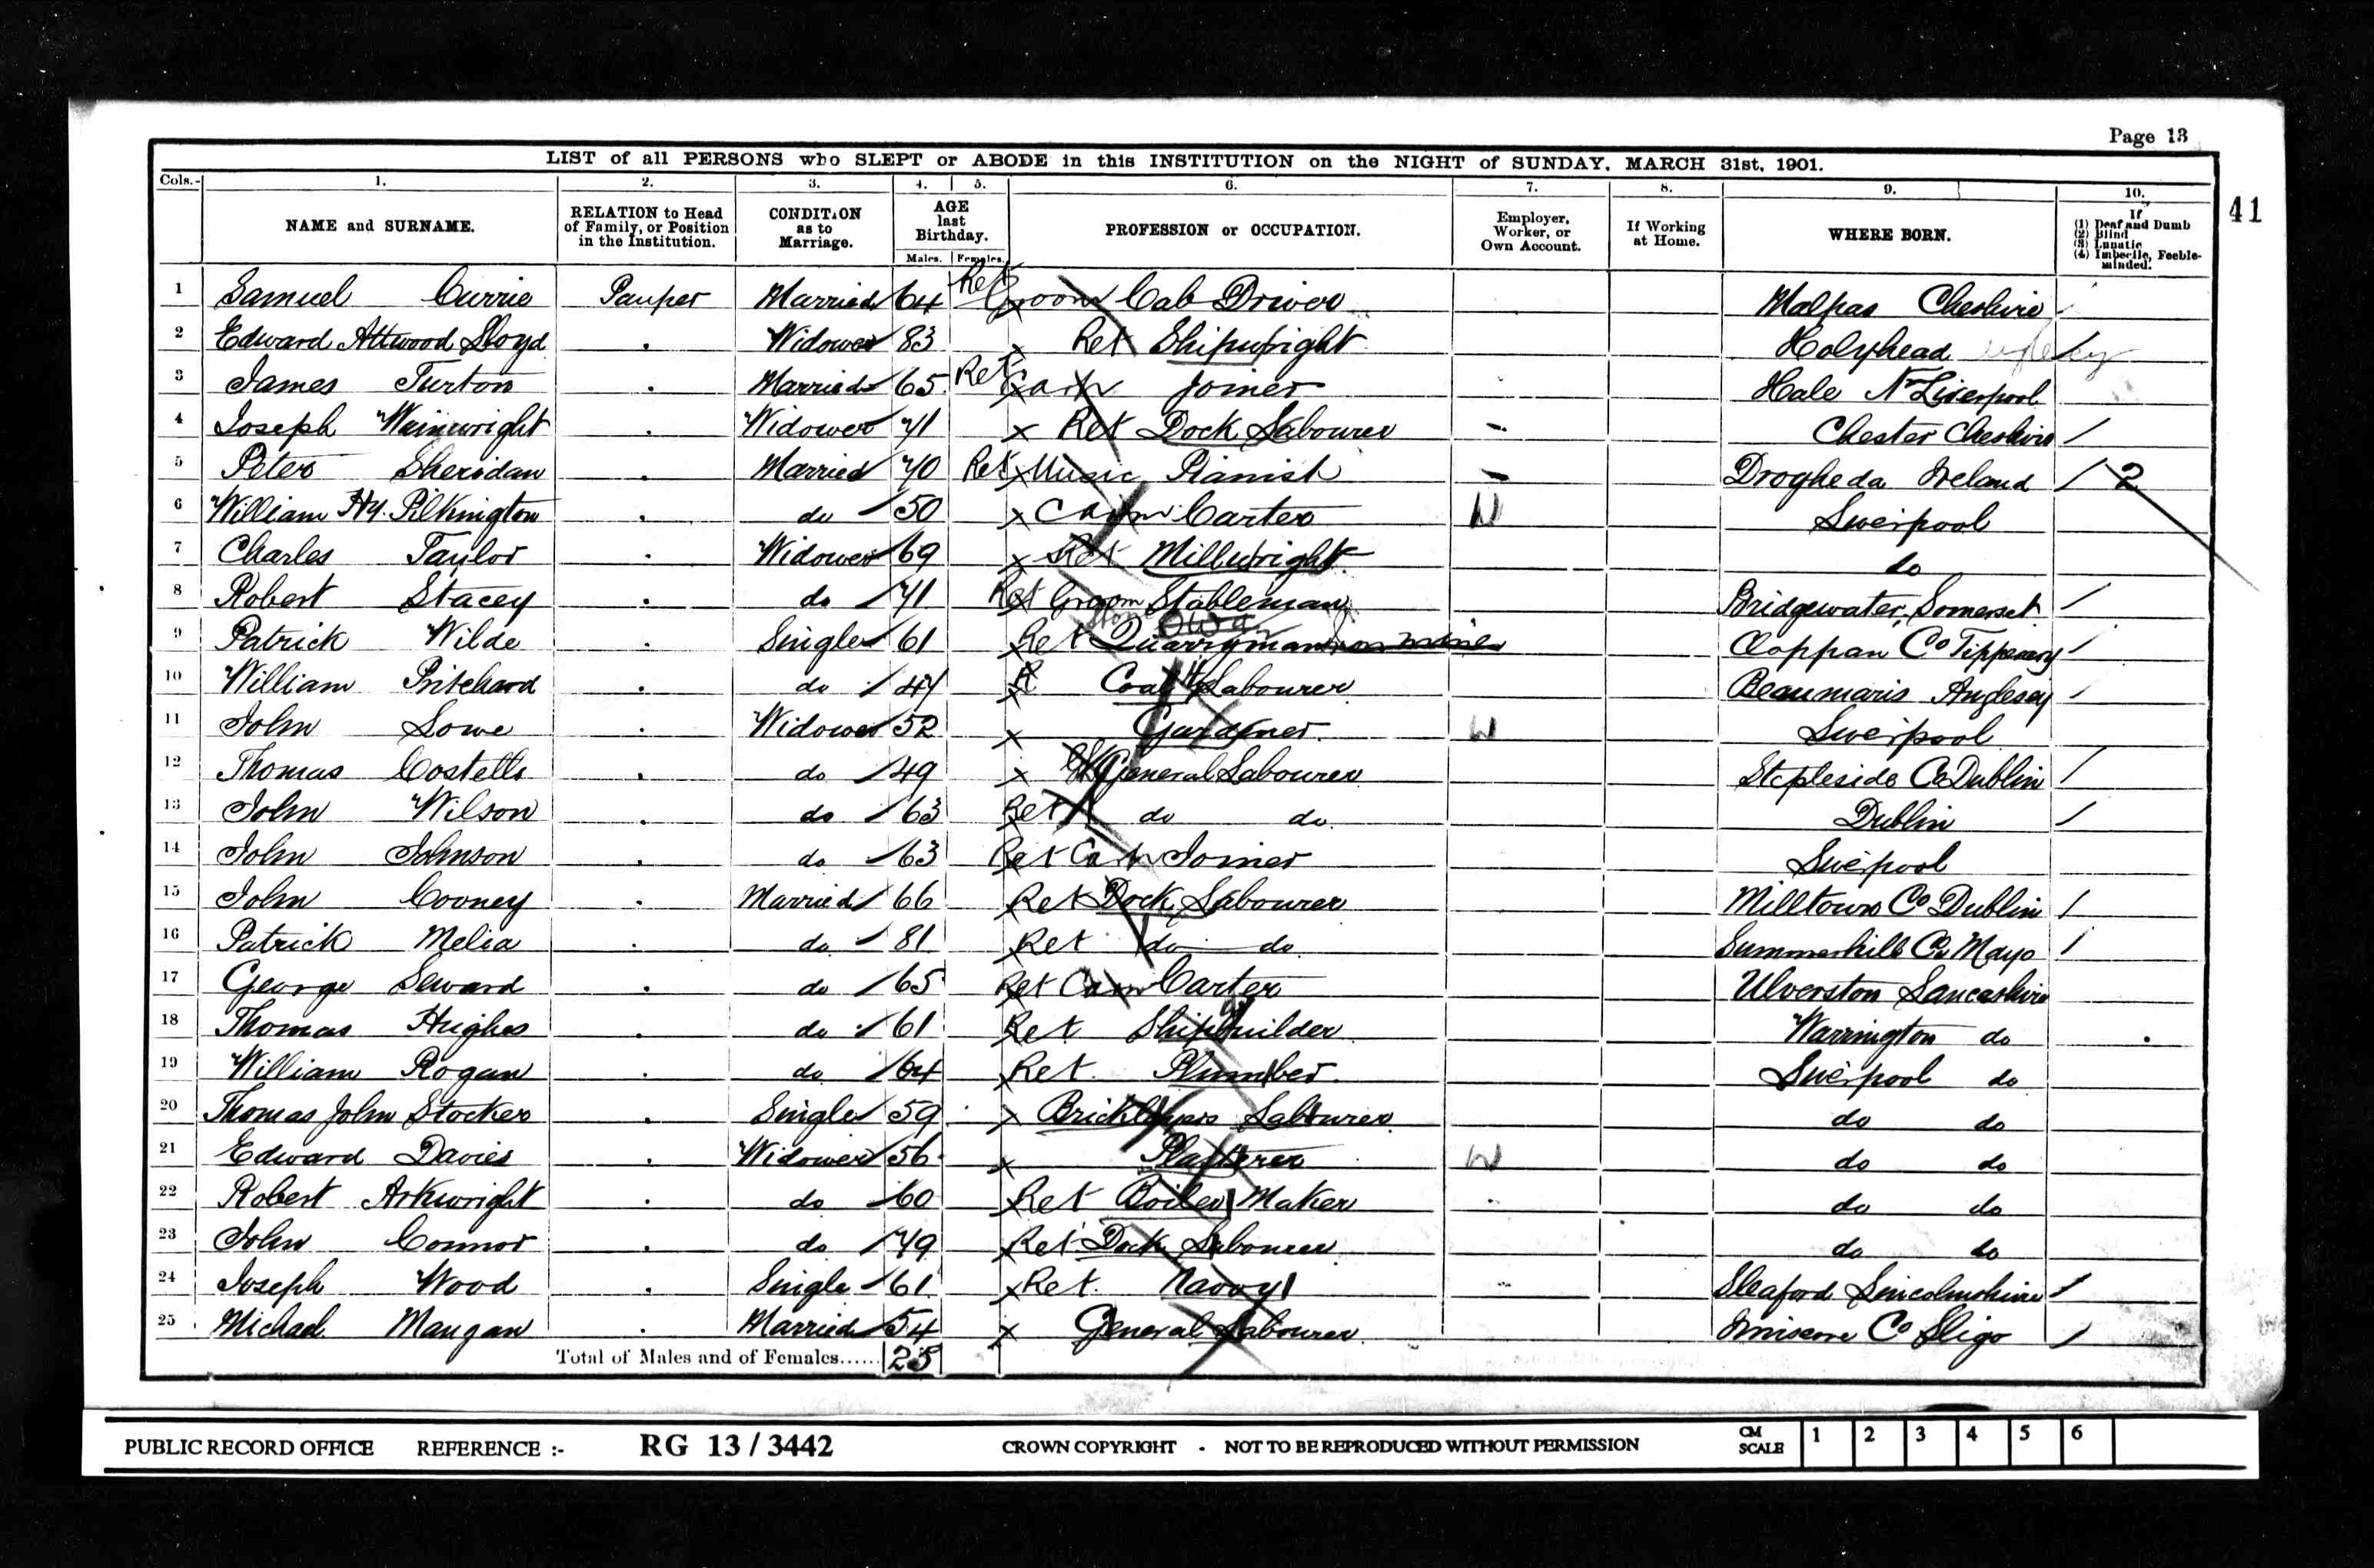 Page 13
LIST of all PERSONS who SLEPT or ABODE in this INSTITUTION on the NIGHT of SUNDAY, MARCH 31st, 1901.
Cols.- 1. 2. 3. 4. 5. 6. 7. 8. 9. 10.
NAME and SURNAME. RELATION to Head of Family, or Position in the Institution. CONDITION as to Marriage. AGE last Birthday. Males. Females. PROFESSION or OCCUPATION. Employer, Worker, or Own Account. If Working at Home. WHERE BORN. If (1) Deaf and Dumb (2) Blind (3) Lunatic (4) Imbecile, Feeble-minded.
41
1 Samuel Currie Pauper Married 64 Ret Groom Cab Driver Malpas Cheshire
2 Edward Attwood Lloyd Widower 83 Ret Shipwright Holyhead
3 James Turton Married 65 Ret Joiner Hale Nr Liverpool
4 Joseph Wainwright Widower 71 Ret Dock Labourer Chester Cheshire
5 Peter Sheridan Married 70 Ret Music Pianist Drogheda Ireland 2
6 William Hy. Pilkington do 50 Carter W Liverpool
7 Charles Taylor Widower 69 Ret Millwright do
8 Robert Stacey do 71 Ret Groom Stableman Bridgewater, Somerset
9 Patrick Wilde Single 61 Ret Stone Quarryman Co Tipperary
10 William Pritchard do Coal Labourer Beaumaris Anglesey
11 John Lowe Widower 52 Gardener W Liverpool
12 Thomas Costello do 49 General Labourer Stepleside Co Dublin
13 John Wilson do 63 Ret do do Dublin
14 John Johnson do 63 Ret Joiner Liverpool
15 John Cooney Married 66 Ret Dock Labourer Milltown Co Dublin
16 Patrick Melia do 81 Ret do do Summerhill Co Mayo
17 George Seward do 65 Ret Carter Ulverston Lancashire
18 Thomas Hughes do 61 Ret Shipbuilder Warrington do
19 William Rogan do 64 Ret Plumber Liverpool do
20 Thomas John Stocker Single 59 Bricklayers Labourer do do
21 Edward Davies Widower 56 Plasterer W do do
22 Robert Arkwright do 60 Ret Boiler Maker do do
23 John Connor do 79 Ret Dock Labourer do do
24 Joseph Wood Single 61 Ret Navvy Sleaford Lincolnshire
25 Michael Mangan Married 54 General Labourer Co Sligo
Total of Males and of Females...... 25
PUBLIC RECORD OFFICE REFERENCE :- RG 13 / 3442 CROWN COPYRIGHT - NOT TO BE REPRODUCED WITHOUT PERMISSION CM SCALE 1 2 3 4 5 6